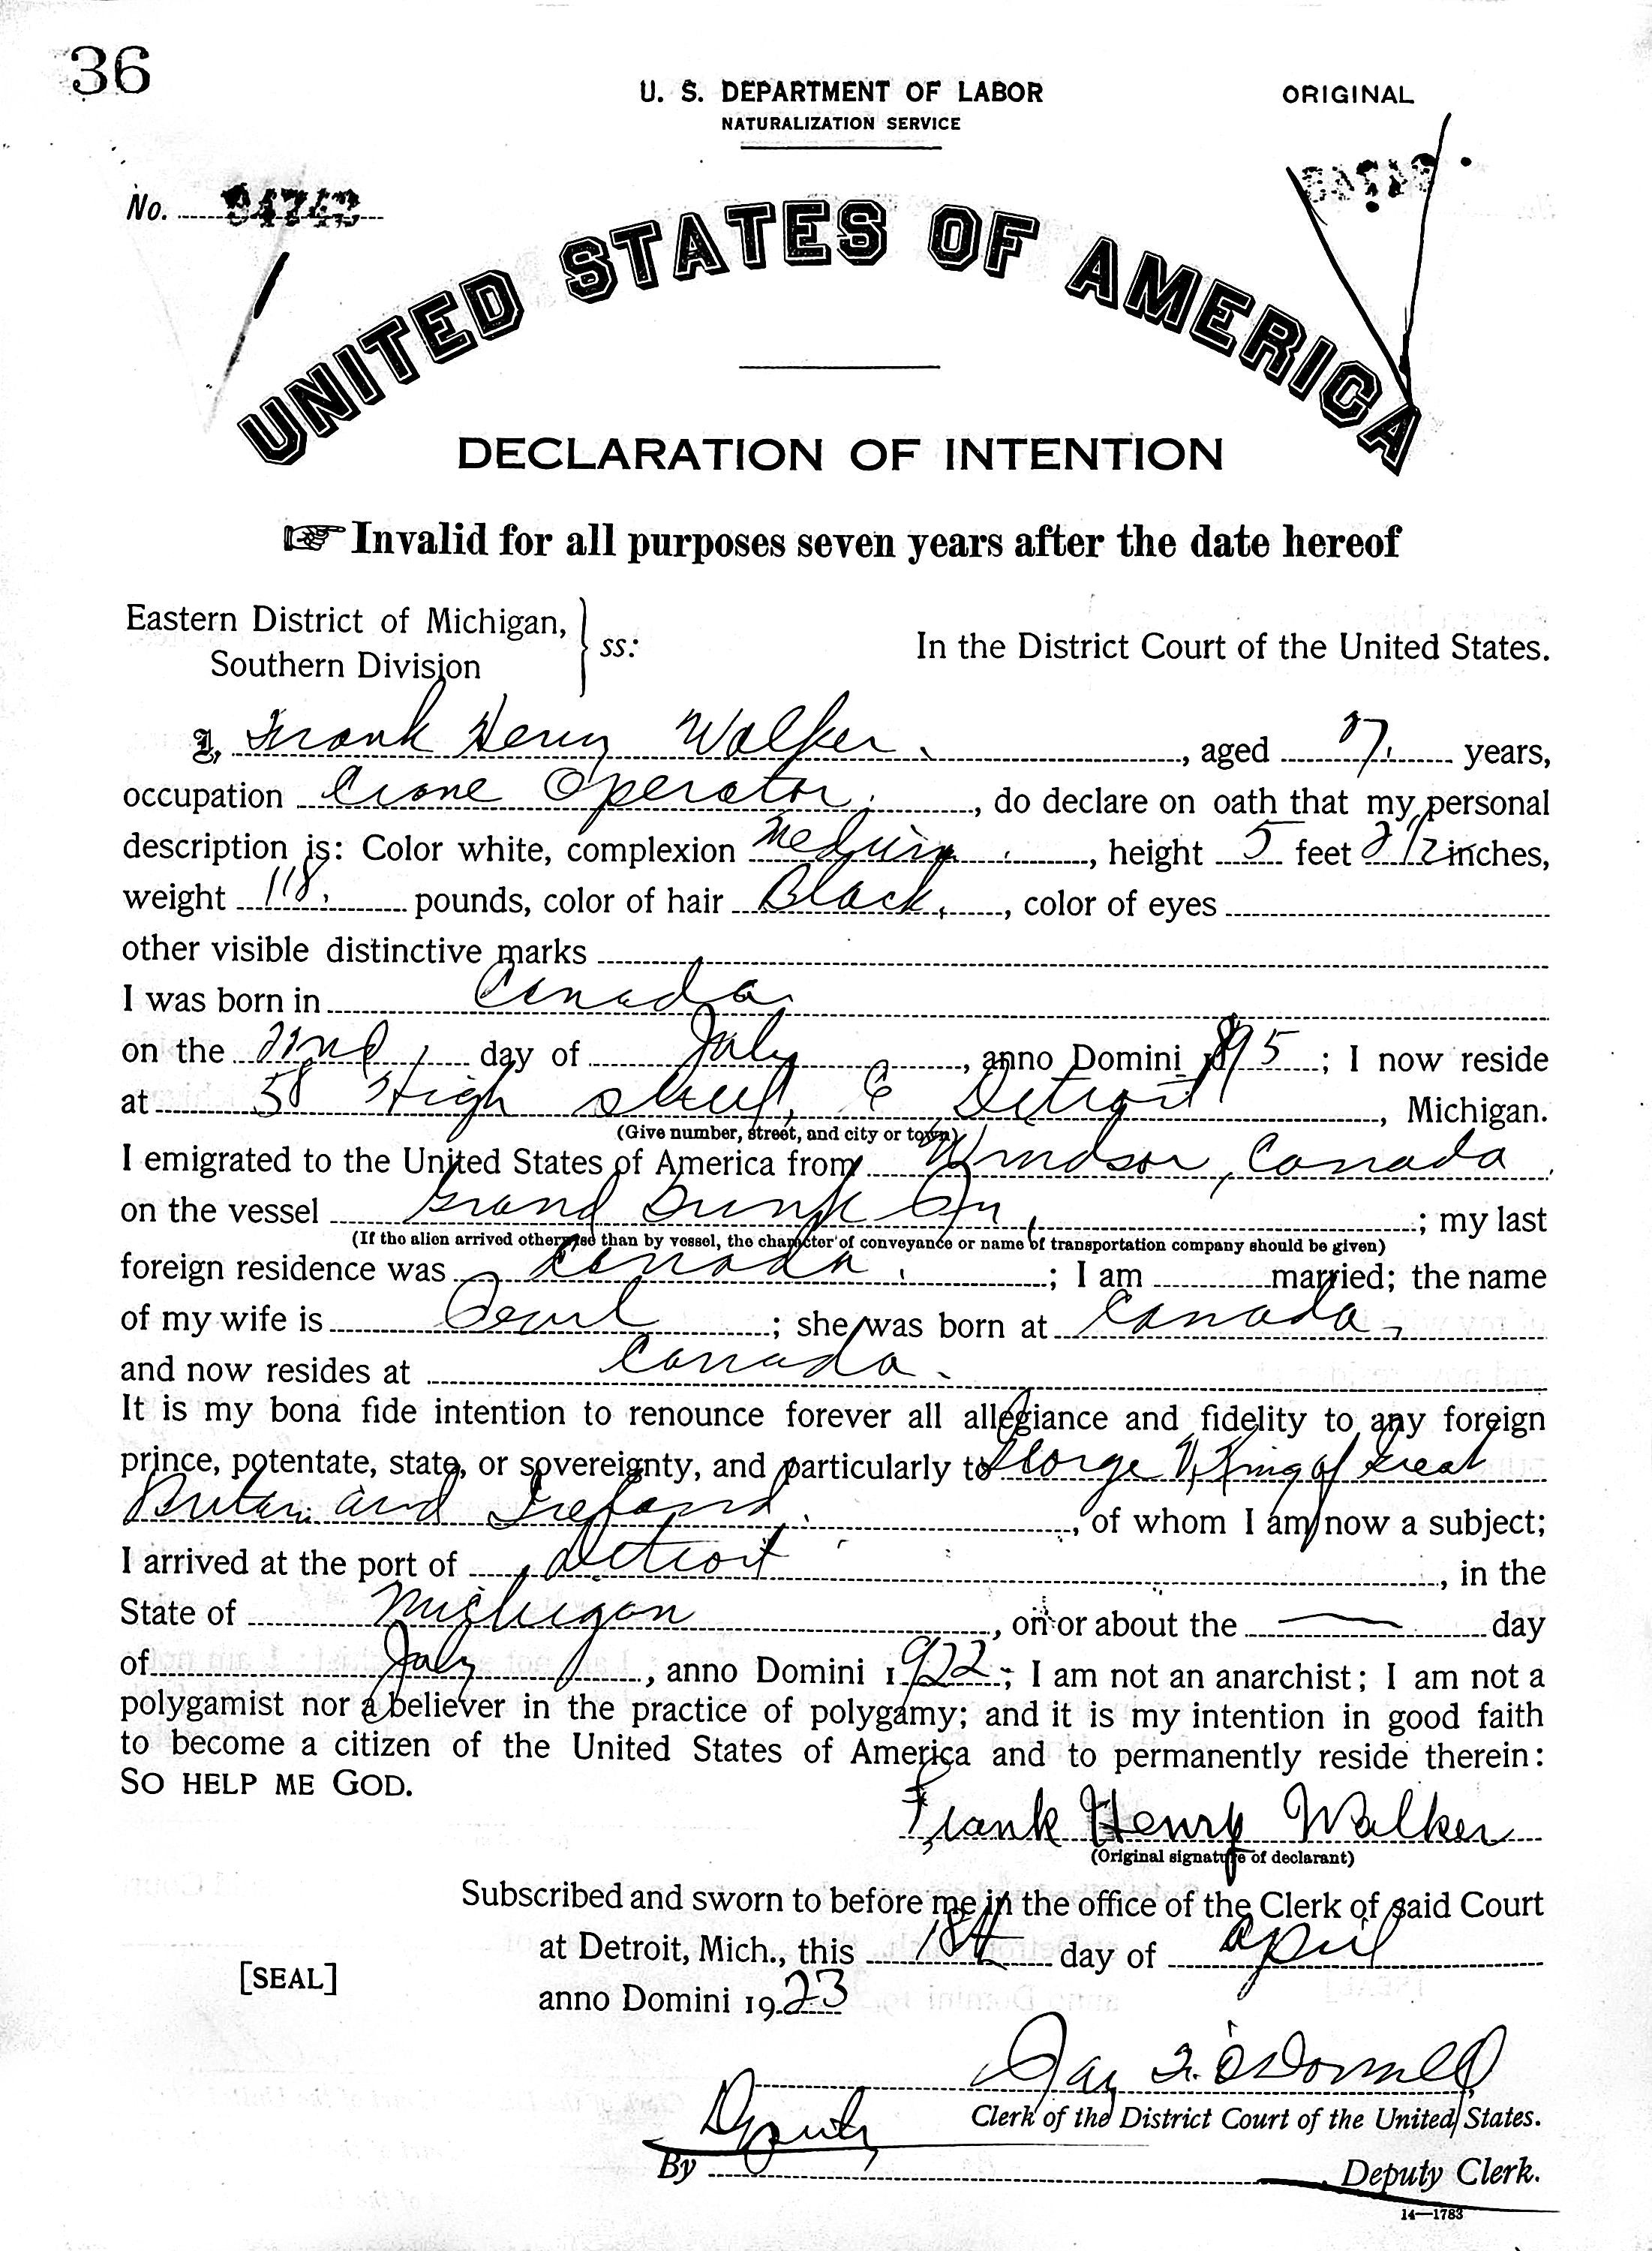 36
U. S. DEPARTMENT OF LABOR
NATURALIZATION SERVICE
ORIGINAL
No. 94743
UNITED STATES OF AMERICA
DECLARATION OF INTENTION
☞ Invalid for all purposes seven years after the date hereof
Eastern District of Michigan,
Southern Division } ss:
In the District Court of the United States.
I, Frank Henry Walker, aged 27 years,
occupation Crane Operator, do declare on oath that my personal
description is: Color white, complexion Medium, height 5 feet 2 1/2 inches,
weight 118 pounds, color of hair Black, color of eyes
other visible distinctive marks
I was born in Canada
on the 22nd day of July, anno Domini 1895; I now reside
at 58 High street, E Detroit, Michigan.
(Give number, street, and city or town)
I emigrated to the United States of America from Windsor, Canada
on the vessel Grand Trunk Ry; my last
(If the alien arrived otherwise than by vessel, the character of conveyance or name of transportation company should be given)
foreign residence was Canada; I am married; the name
of my wife is Pearl; she was born at Canada
and now resides at Canada.
It is my bona fide intention to renounce forever all allegiance and fidelity to any foreign
prince, potentate, state, or sovereignty, and particularly to George V, King of Great
Britain and Ireland, of whom I am now a subject;
I arrived at the port of Detroit, in the
State of Michigan, on or about the — day
of July, anno Domini 1922; I am not an anarchist; I am not a
polygamist nor a believer in the practice of polygamy; and it is my intention in good faith
to become a citizen of the United States of America and to permanently reside therein:
SO HELP ME GOD.
Frank Henry Walker
(Original signature of declarant)
Subscribed and sworn to before me in the office of the Clerk of said Court
at Detroit, Mich., this 18th day of April
[SEAL]
anno Domini 1923
Jay F. O'Donnell
Deputy Clerk of the District Court of the United States.
By Deputy Clerk.
14—1783